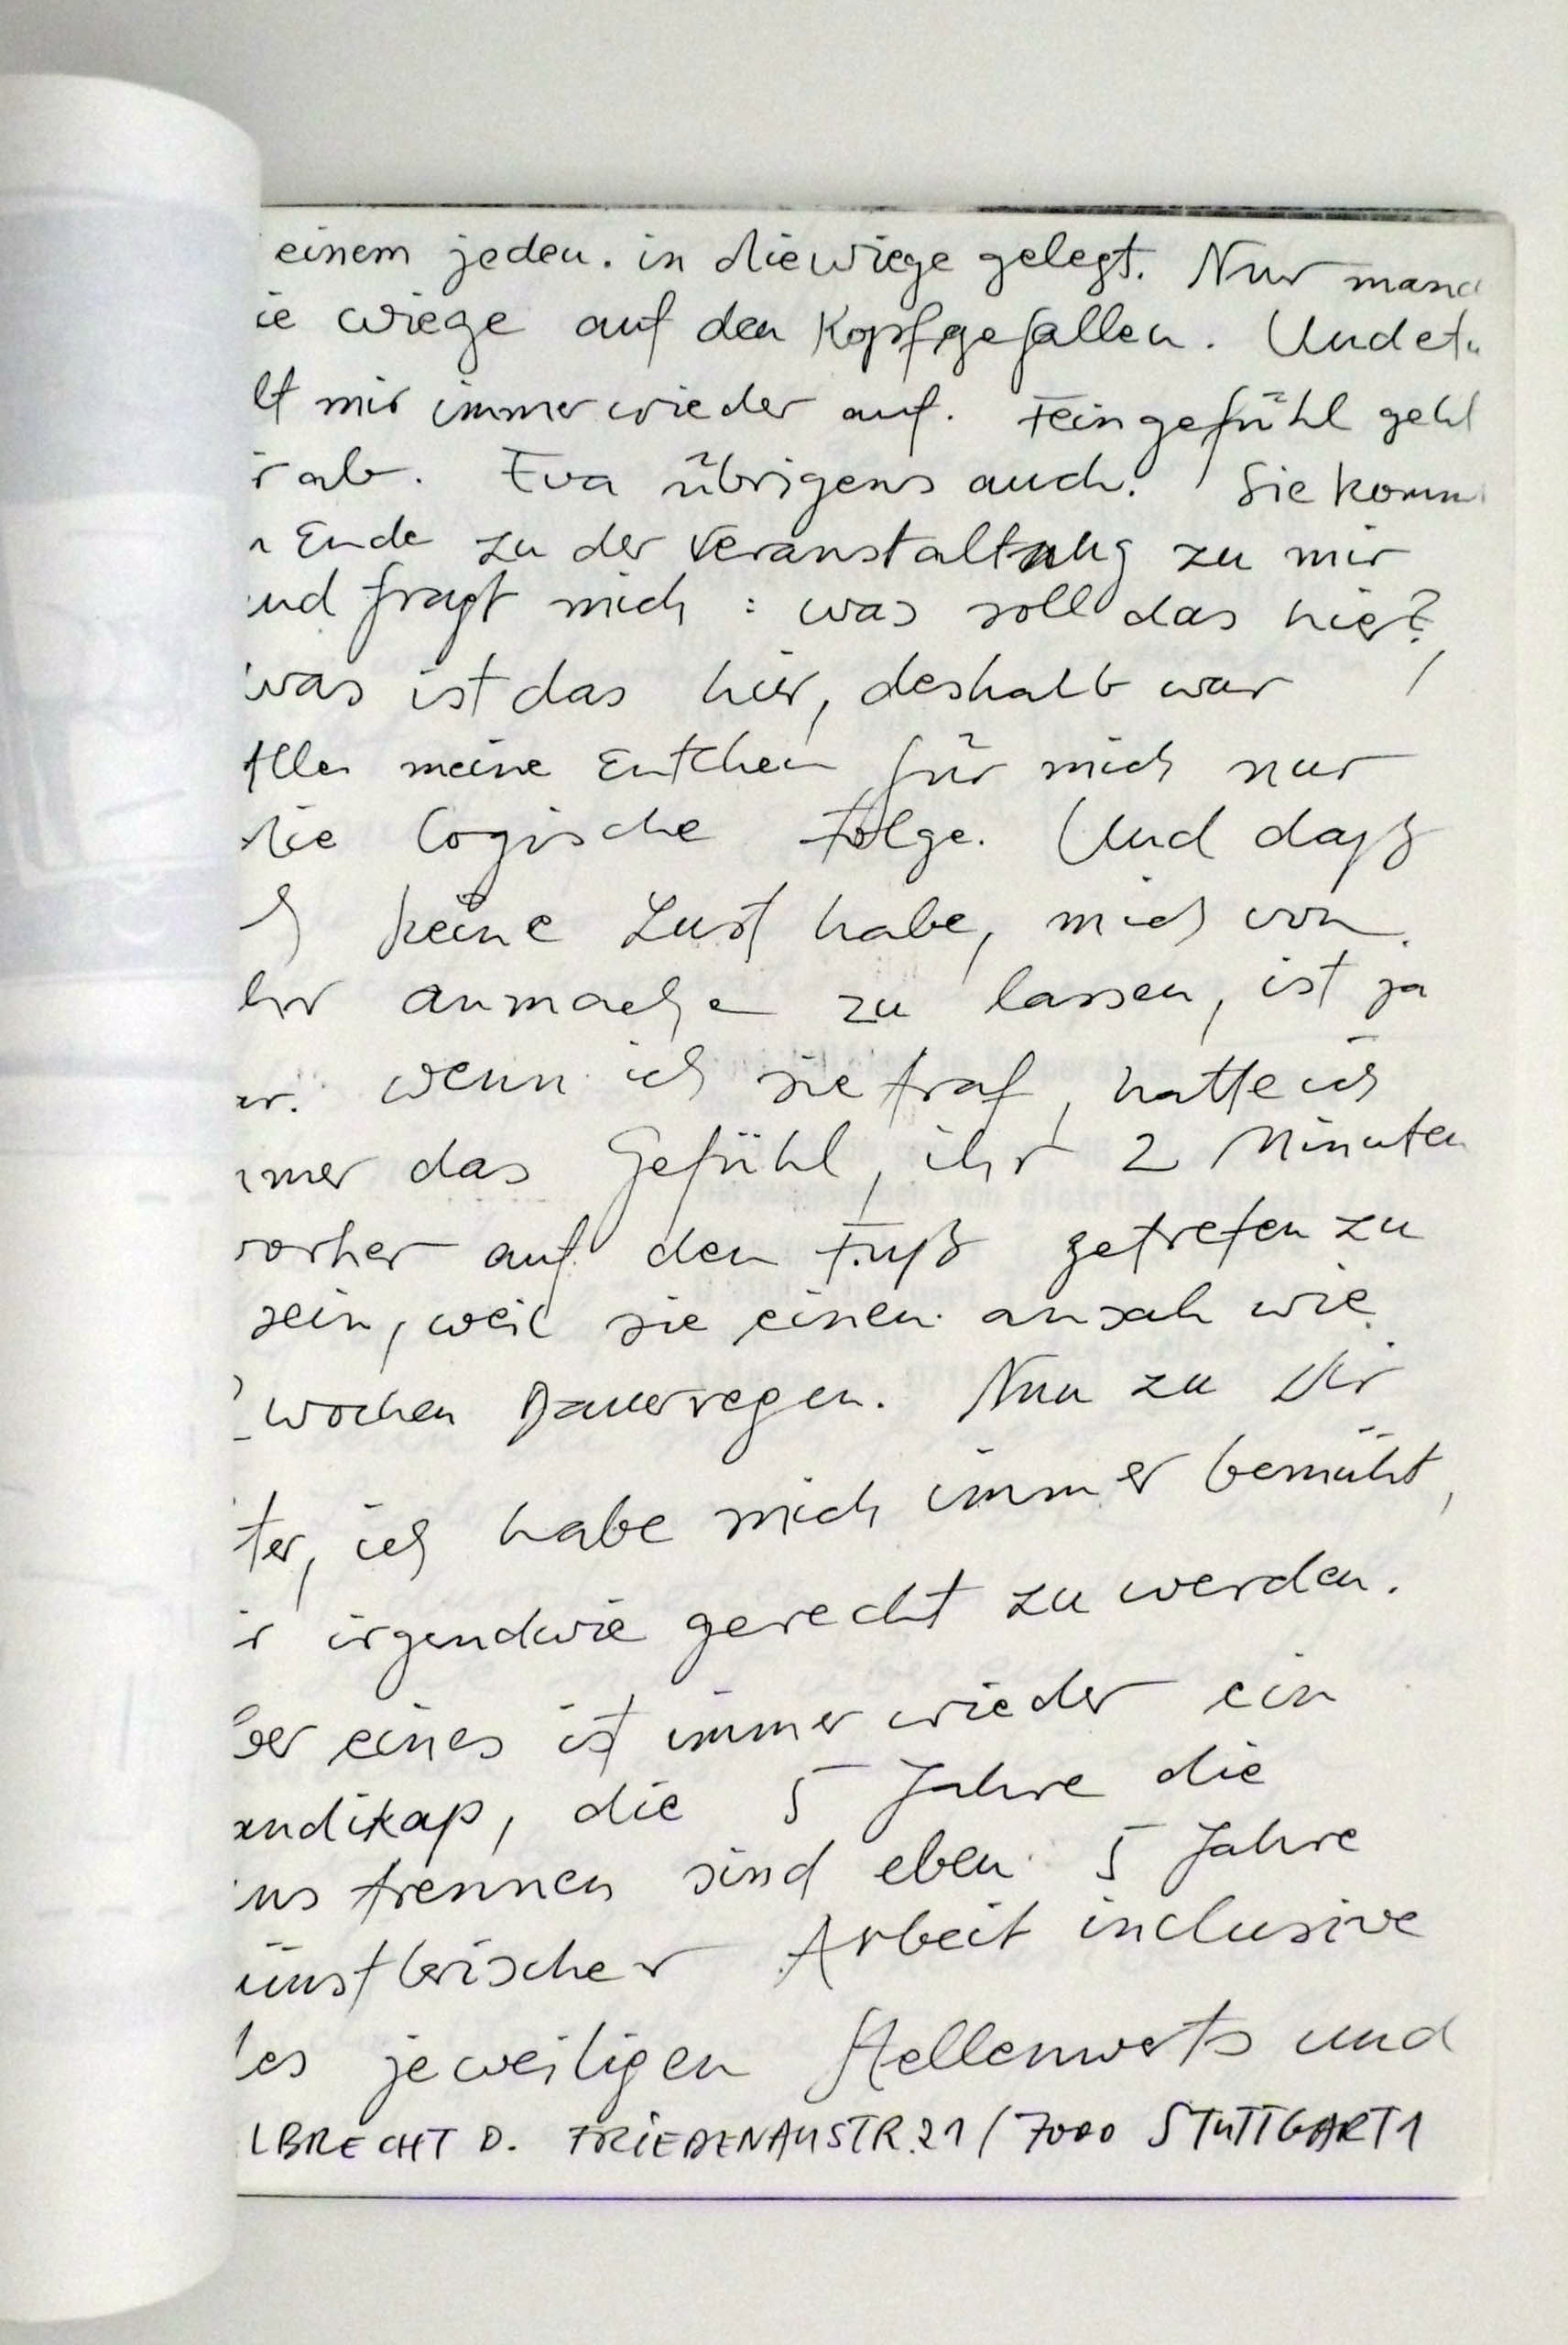 einem jeden. in die wiege gelegt. Nur manc
ie wiege auf den Kopf gefallen. Und
lt mir immer wieder auf. Feingefühl geht
r ab. Eva übrigens auch. Sie komm
Ende zu der Veranstaltung zu mir
und fragt mich : was soll das hier?,
was ist das hier, deshalb war
Alle meine Entchen für mich nur
die logische Folge. Und daß
keine Lust habe, mich von
ihr anmachen zu lassen, ist ja
ar. wenn ich sie traf, hatte ich
mmer das Gefühl, ihr 2 Minuten
vorher auf den Fuß getreten zu
sein, weil sie einen ansah wie
wochen Dauerregen. Nun zu Dir
ter, ich habe mich immer bemüht,
ir irgendwie gerecht zu werden.
ber eines ist immer wieder ein
andikap, die 5 Jahre die
uns trennen sind eben 5 Jahre
ünstlerischer Arbeit inclusive
des jeweiligen Stellenwerts und
LBRECHT D. FRIEDENAUSTR.21 / 7000 STUTTGART 1